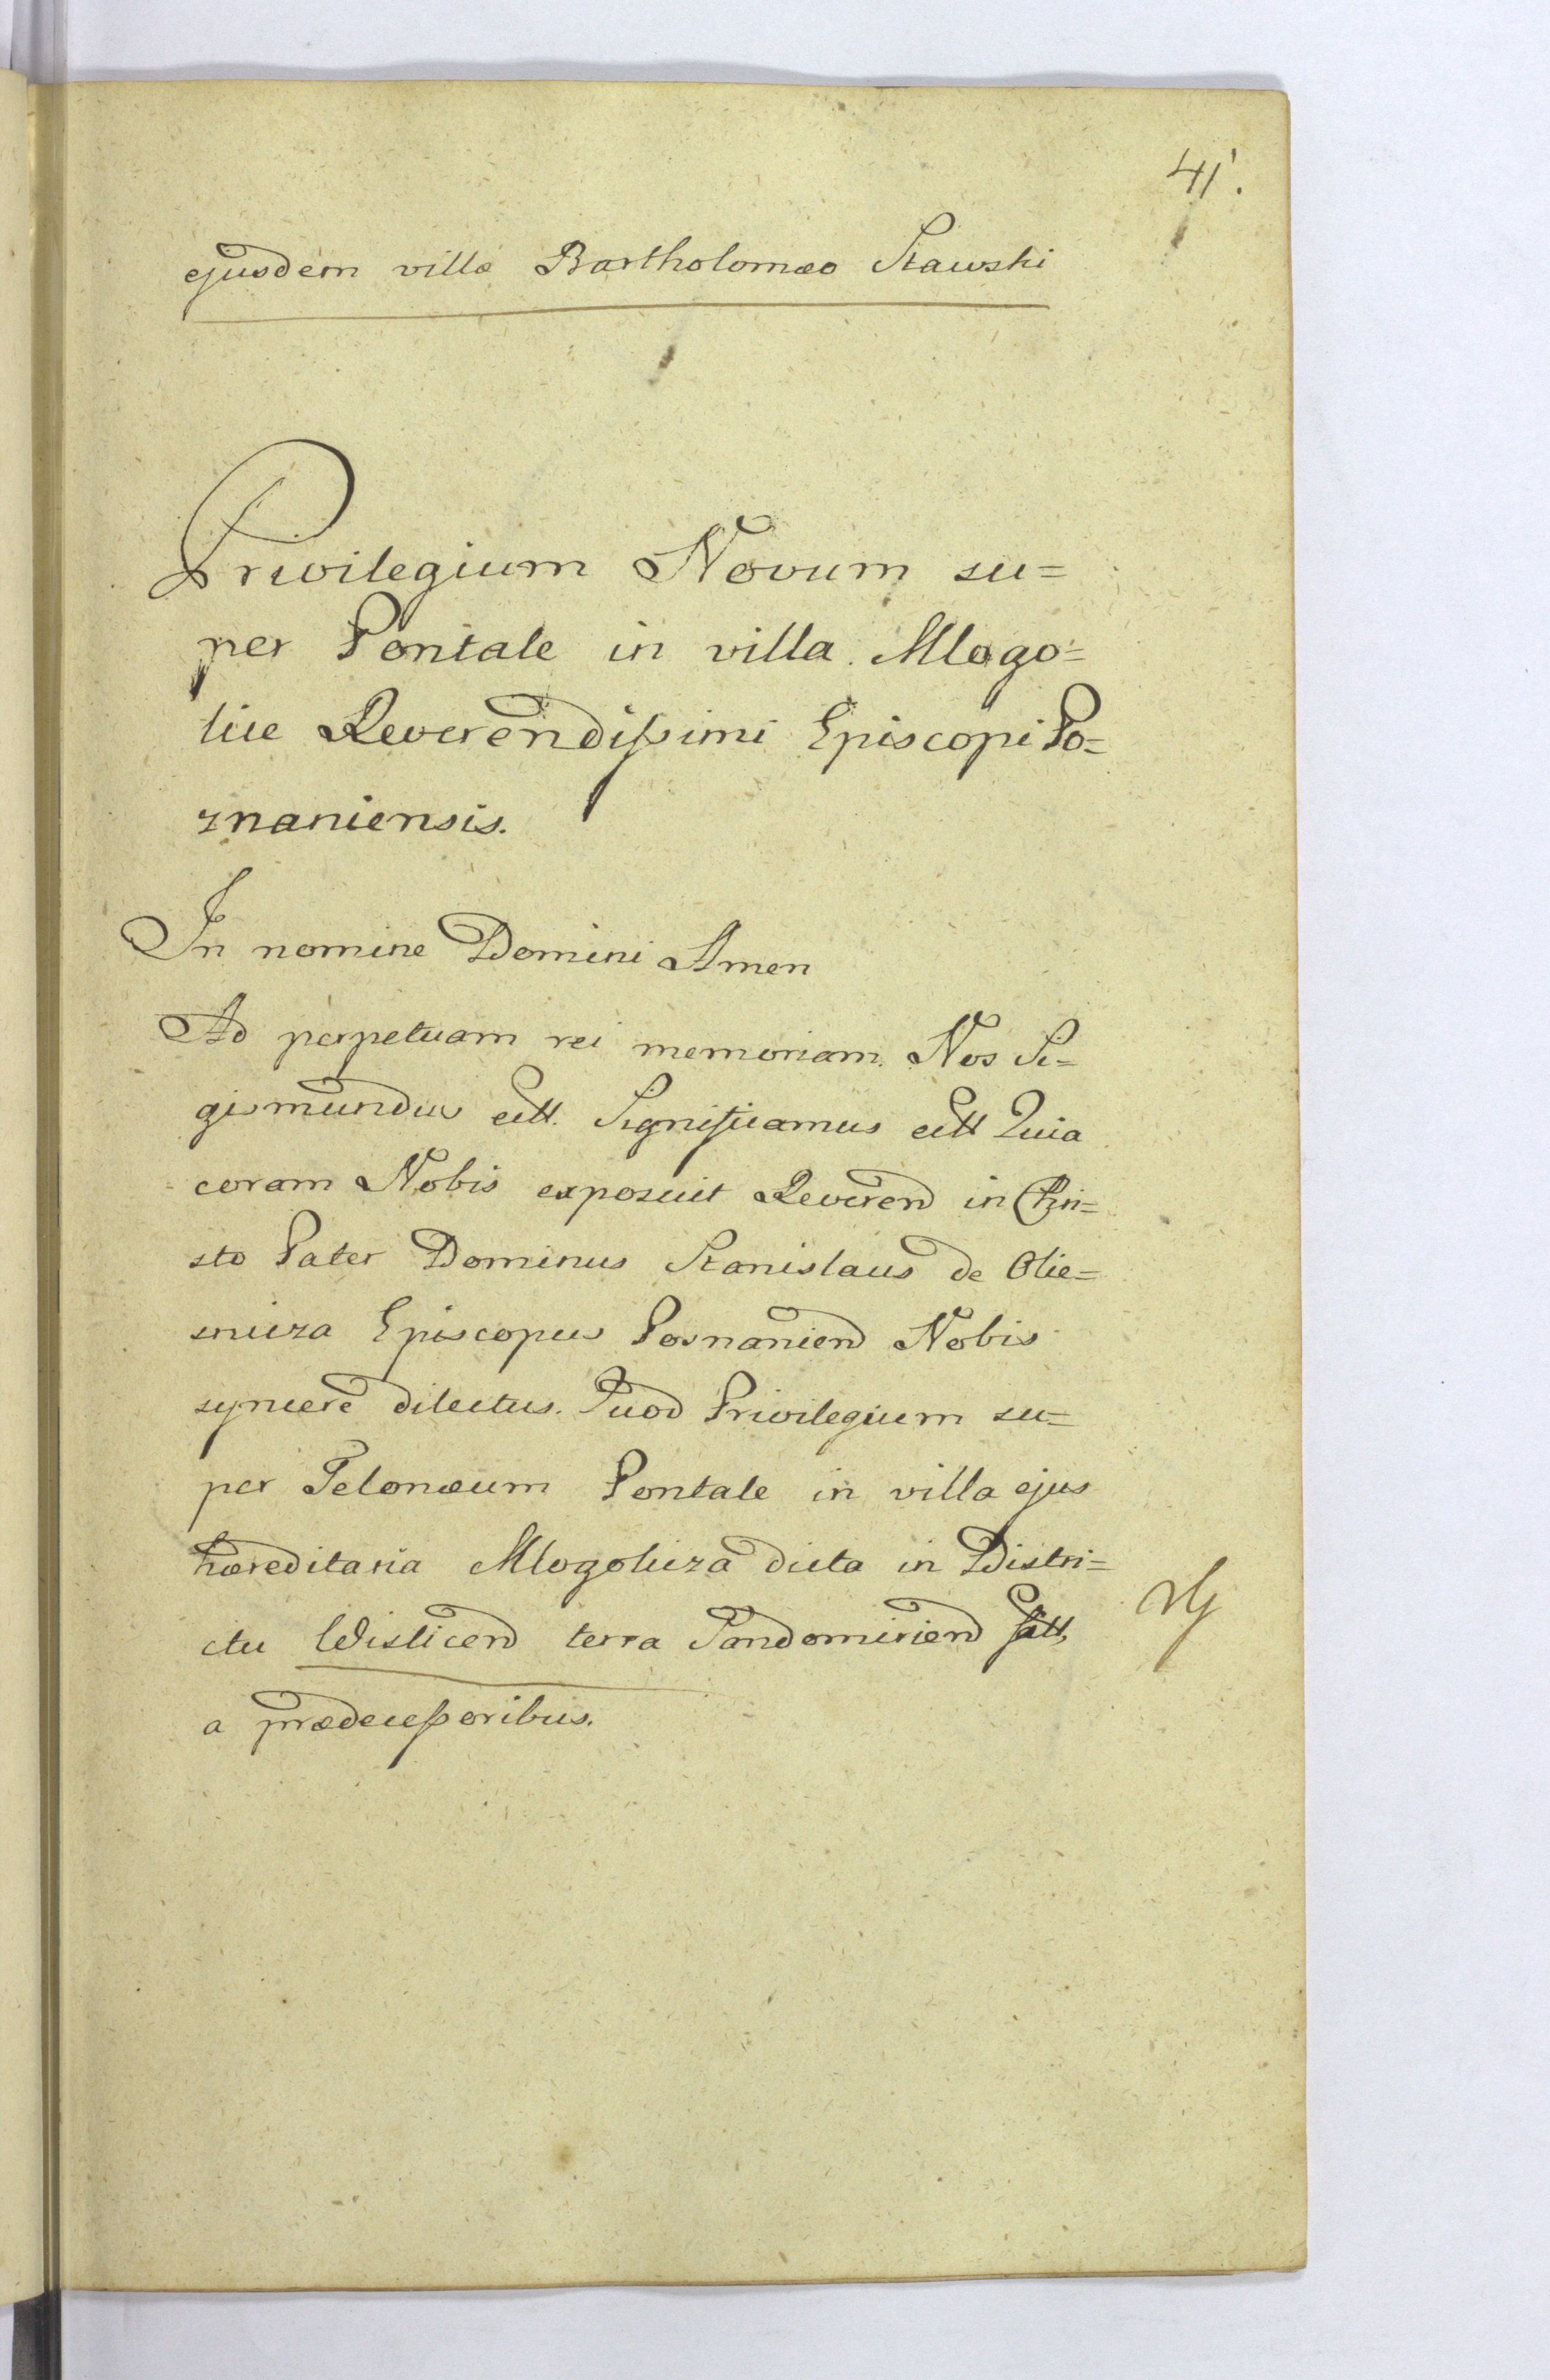 41.
ejusdem villæ Bartholomæo Stawski
Privilegium Novum su=
per Pontale in villa Mlogo=
lice Reverendissimi Episcopi Po=
znaniensis.
In nomine Domini Amen
Ad perpetuam rei memoriam. Nos Si=
gismundus ett. Significamus ett Quia
coram Nobis exposuit Reverend in Chri=
sto Pater Dominus Stanislaus de Olie=
snicza Episcopus Posnaniend Nobis
syncere dilectus. Quod Privilegium su=
per Telonæum Pontale in villa ejus
hæreditaria Mlogolicza dicta in Distri=
ctu Wislicend terra Sandomiriend
a prædecessoribus.